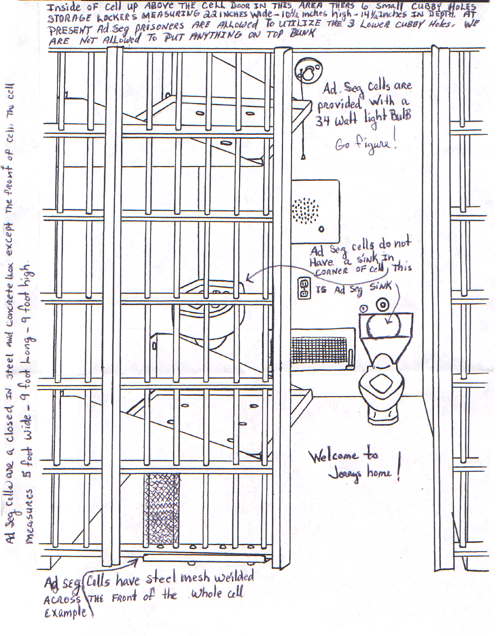 Inside of cell up ABOVE THE CELL DOOR IN THIS AREA THERS 6 SMALL CUBBY HOLES
STORAGE LOCKERS MEASURING 22 INCHES Wide - 10½ inches high - 14¼ INCHES IN DEPTH. AT
PRESENT Ad.Seg PRISONERS ARE ALLOWED TO UTILIZE THE 3 LOWER CUBBY HOLES. WE
ARE NOT ALLOWED TO PUT ANYTHING ON TOP BUNK
Ad. Seg Cells are
provided with a
34 Watt light Bulb
Go figure!
Ad Seg cells do not
Have a SINK IN
CORNER OF CELL, THIS
IS Ad Seg SINK
Welcome to
Jerrys home!
Ad Seg Cells have steel mesh weilded
ACROSS THE FRONT OF THE Whole cell
Example
Ad Seg Cells are a closed in steel and Concrete box except the front of cell. The cell
measures 5 foot wide - 9 foot long - 9 foot high.